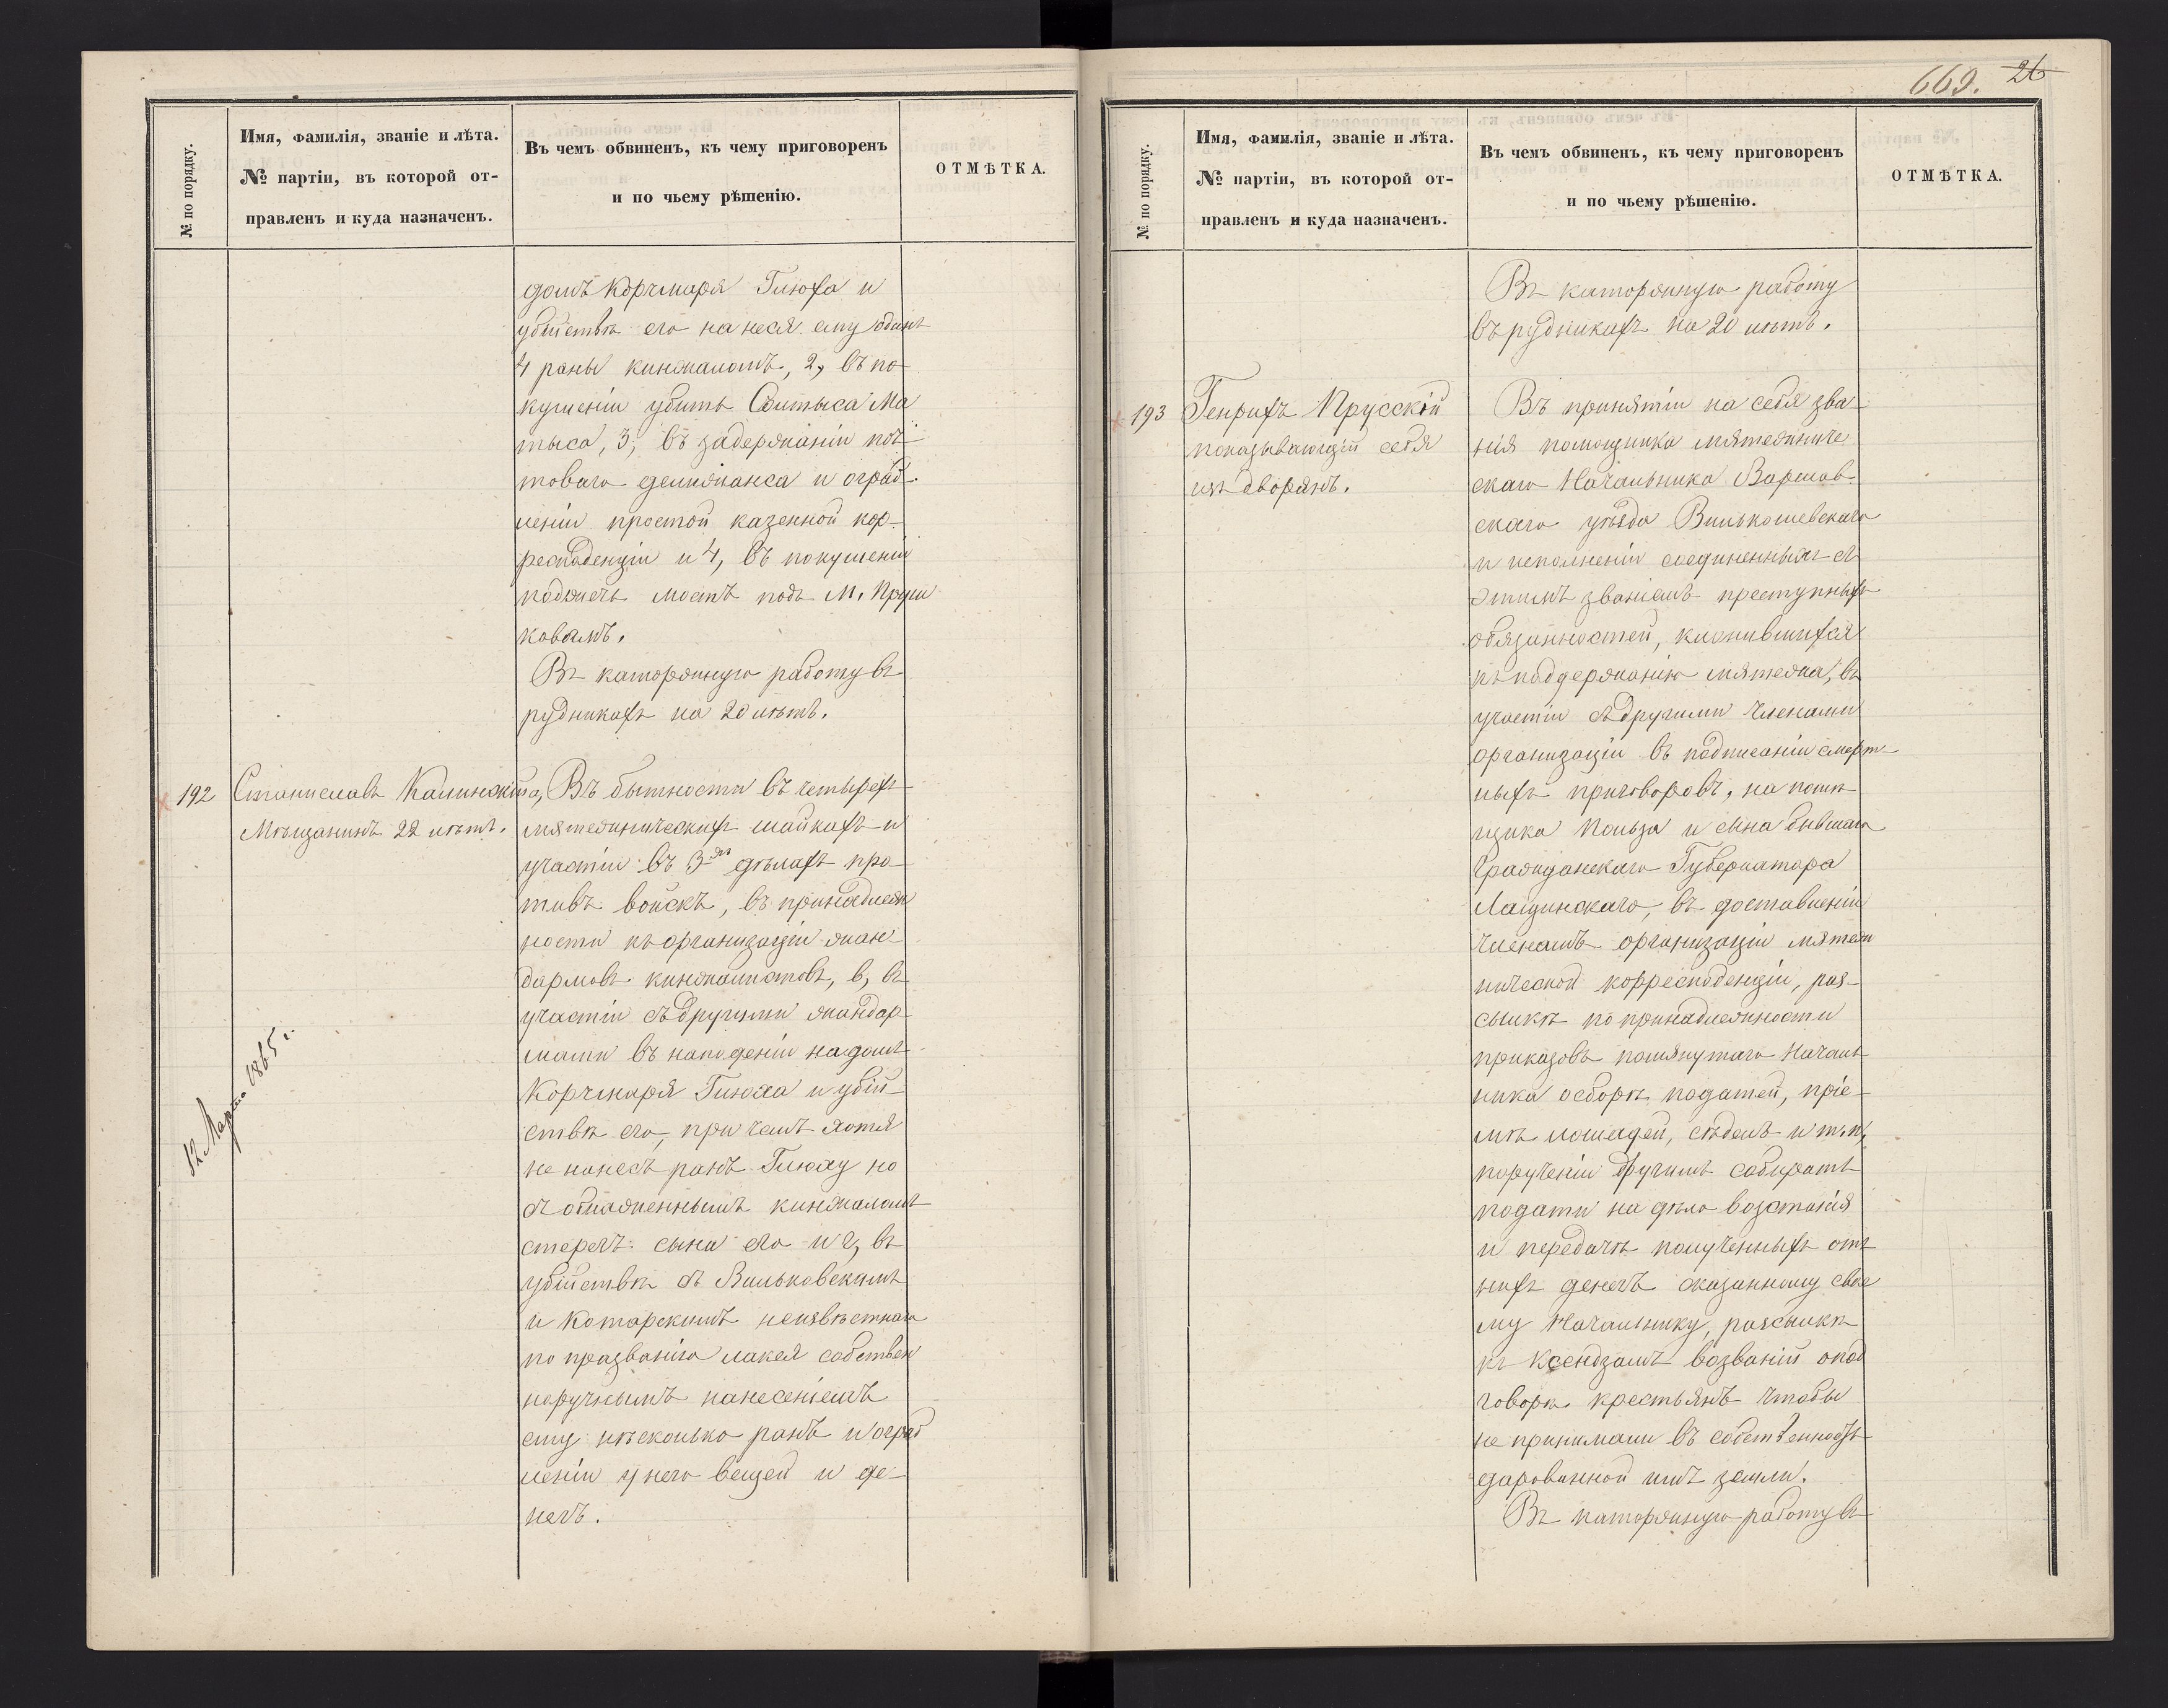 № по порядку.
Имя, фамилія, званіе и лѣта.
№ партіи, въ которой от-
правленъ и куда назначенъ.
Въ чемъ обвиненъ, къ чему приговоренъ
и по чьему рѣшенію.
ОТМѢТКА.
домъ Корчмаря Глюха и
убійствѣ его нанеся ему одинъ
4 раны кинжаломъ, 2, въ по-
кушеніи убить Солтыса Ма
тыса, 3, въ задержаніи поч-
товаго делижанса и ограб-
леніи простой казенной кор-
респоденціи и 4, въ покушеніи
поджечь мостъ подъ М. Пруш
ковамъ.
Въ каторжную работу въ
рудникахъ на 20 лѣтъ.
192 Станиславъ Калинскій,
Мѣщанинъ 22 лѣтъ.
12 Марта 1865 г.
а, Въ бытности въ четырехъ
мятежническихъ шайкахъ и
участіи въ 3-хъ дѣлахъ про-
тивъ войскъ, въ принадлеж
ности къ организаціи жан-
дармовъ кинжалистовъ, в, въ
участіи съ другими жандар
мами въ нападеніи на домъ
Корчмаря Глюха и убій-
ствѣ его, при чемъ хотя
не нанесъ ранъ Глюху но
съ обнаженнымъ кинжаломъ
стерегъ сына его и г, въ
убійствѣ съ Вильковскимъ
и Котарскимъ неизвѣстнаго
по прозванію лакея собствен
норучнымъ нанесеніемъ
ему нѣсколько ранъ и ограб
леніи у него вещей и де-
негъ.
669. 26
№ по порядку.
Имя, фамилія, званіе и лѣта.
№ партіи, въ которой от-
правленъ и куда назначенъ.
Въ чемъ обвиненъ, къ чему приговоренъ
и по чьему рѣшенію.
ОТМѢТКА.
Въ каторжную работу
въ рудникахъ на 20 лѣтъ.
193 Генрихъ Прусскій
показывающій себя
изъ дворянъ.
Въ принятіи на себя зва-
нія помощника мятежниче
скаго Начальника Варшав-
скаго уѣзда Вилькошевскаго
и исполненіи соединенныхъ съ
этимъ званіемъ преступныхъ
обязанностей, клонившихся
къ поддержанію мятежа, въ
участіи съ другими членами
организаціи въ подписаніи смерт-
ныхъ приговоровъ, на помѣ
щика Польза и сына бывшаго
Гражданскаго Губернатора
Лащинскаго, въ доставленіи
членамъ организаціи мятеж
нической корресподенціи, раз-
сылкѣ по принадлежности
приказовъ помянутаго Началь
ника о сборѣ податей, пріе-
мѣ лошадей, сѣделъ и т. п,
порученіи другимъ собирать
подати на дѣло возстанія
и передачѣ полученныхъ отъ
нихъ денегъ сказанному свое
му Начальнику, разсылкѣ
къ Ксендзамъ воззваній о под
говорѣ крестьянъ чтобы
не принимали въ собственность
дарованной имъ земли.
Въ каторжную работу въ